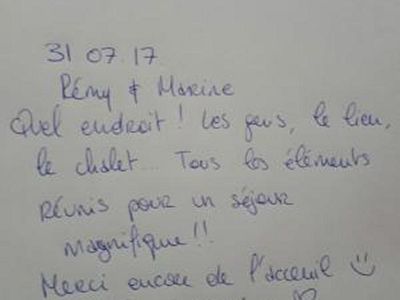 31 07 17
Rémy & Marine
Quel endroit ! Les gens, le lieu,
le chalet... Tous les éléments
réunis pour un séjour
magnifique !!
Merci encore de l'acceuil ☺